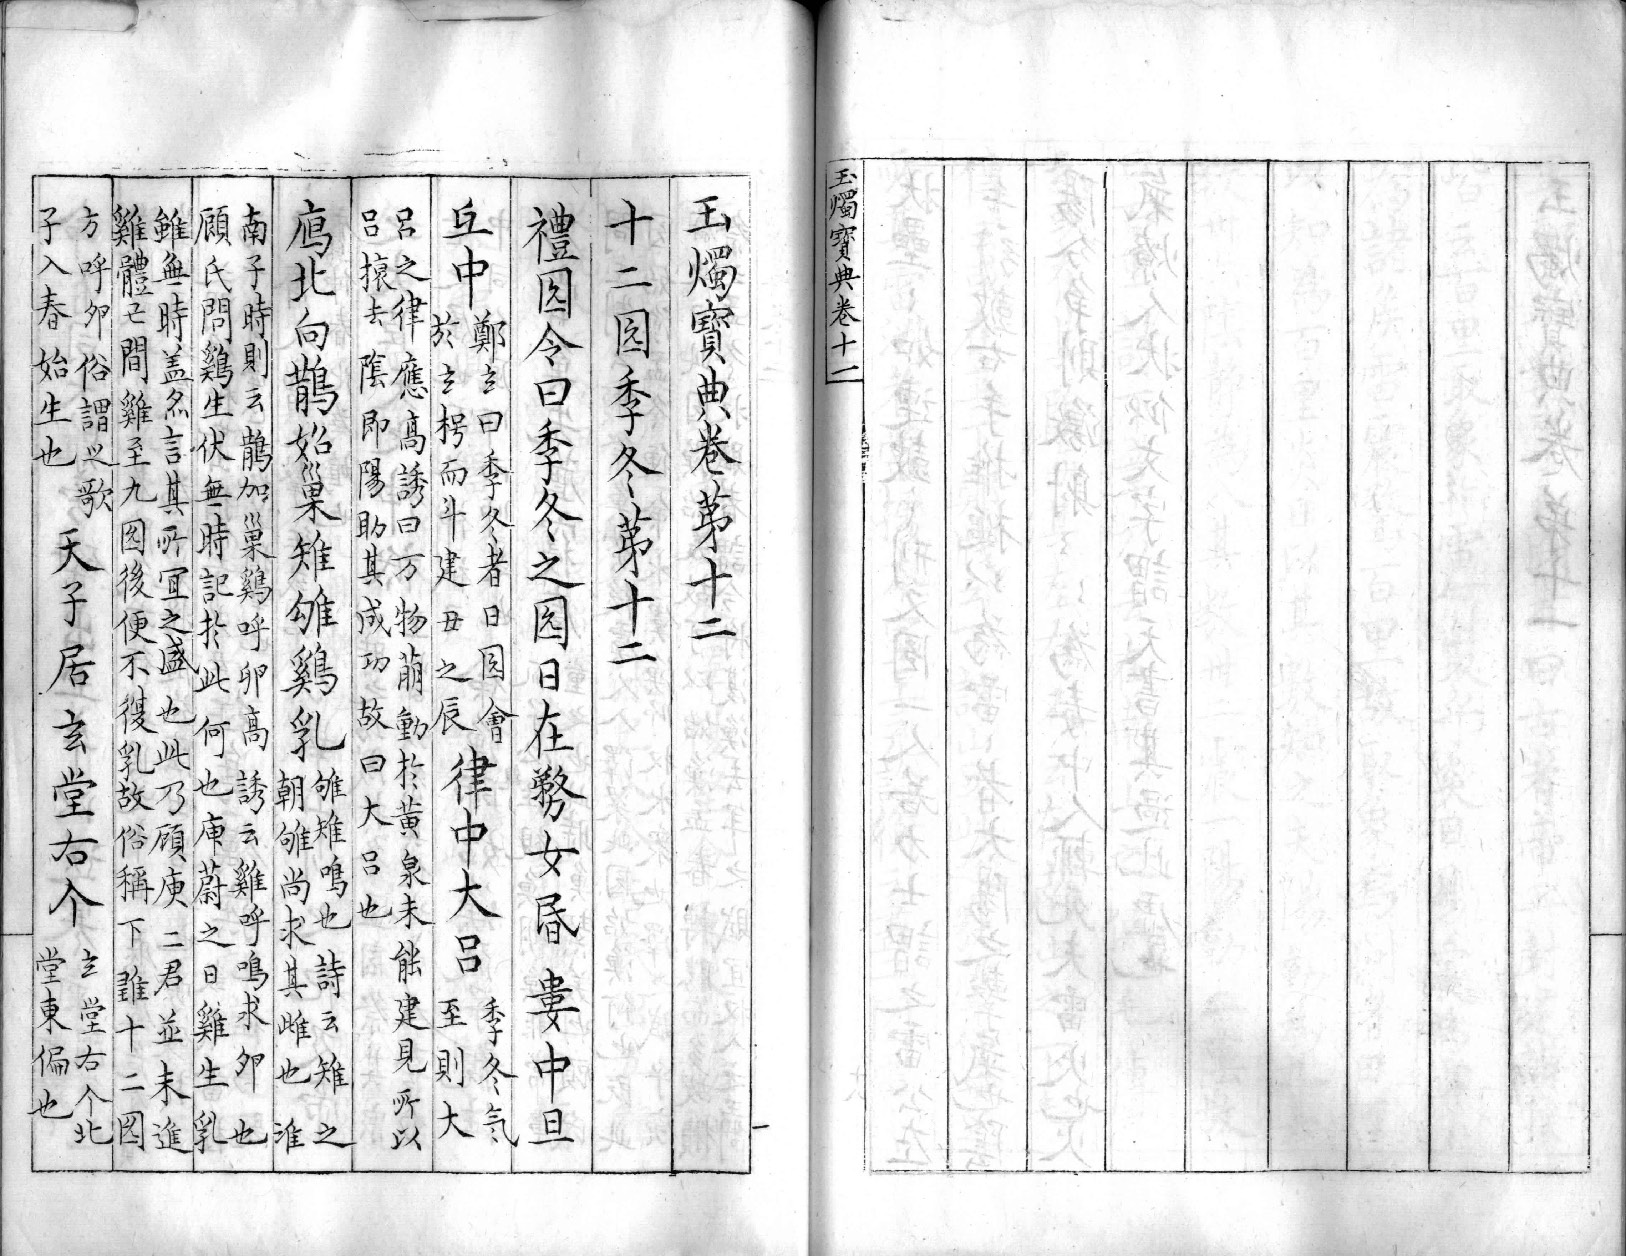 玉燭寶典卷十二
玉燭寶典卷第十二
十二囝季冬第十二
禮囝令曰季冬之囝日在婺女昏婁中旦
氐中
鄭玄曰季冬者日囝會
於玄枵而斗建丑之辰
律中大呂
季冬氣
至則大
呂之律應高誘曰万物萠動於黄泉未能建見所以
呂振去陰即陽助其成功故曰大呂也
鴈北向鵲始巢雉雊鷄乳
雊雉鳴也詩云雉之
朝雊尚求其雌也淮
南子時則云鵲加巢鷄呼卵高誘云雞呼鳴求卵也
顧氏問鷄生伏無時記於此何也庾蔚之曰雞生乳
雖無時盖名言其所宜之盛也此乃顧庾二君並未進
雞體亡間雞至九囝後便不復乳故俗稱下雖十二囝
方呼卵俗謂之歌
子入春始生也
天子居玄堂右个
玄堂右个北
堂東偏也
一